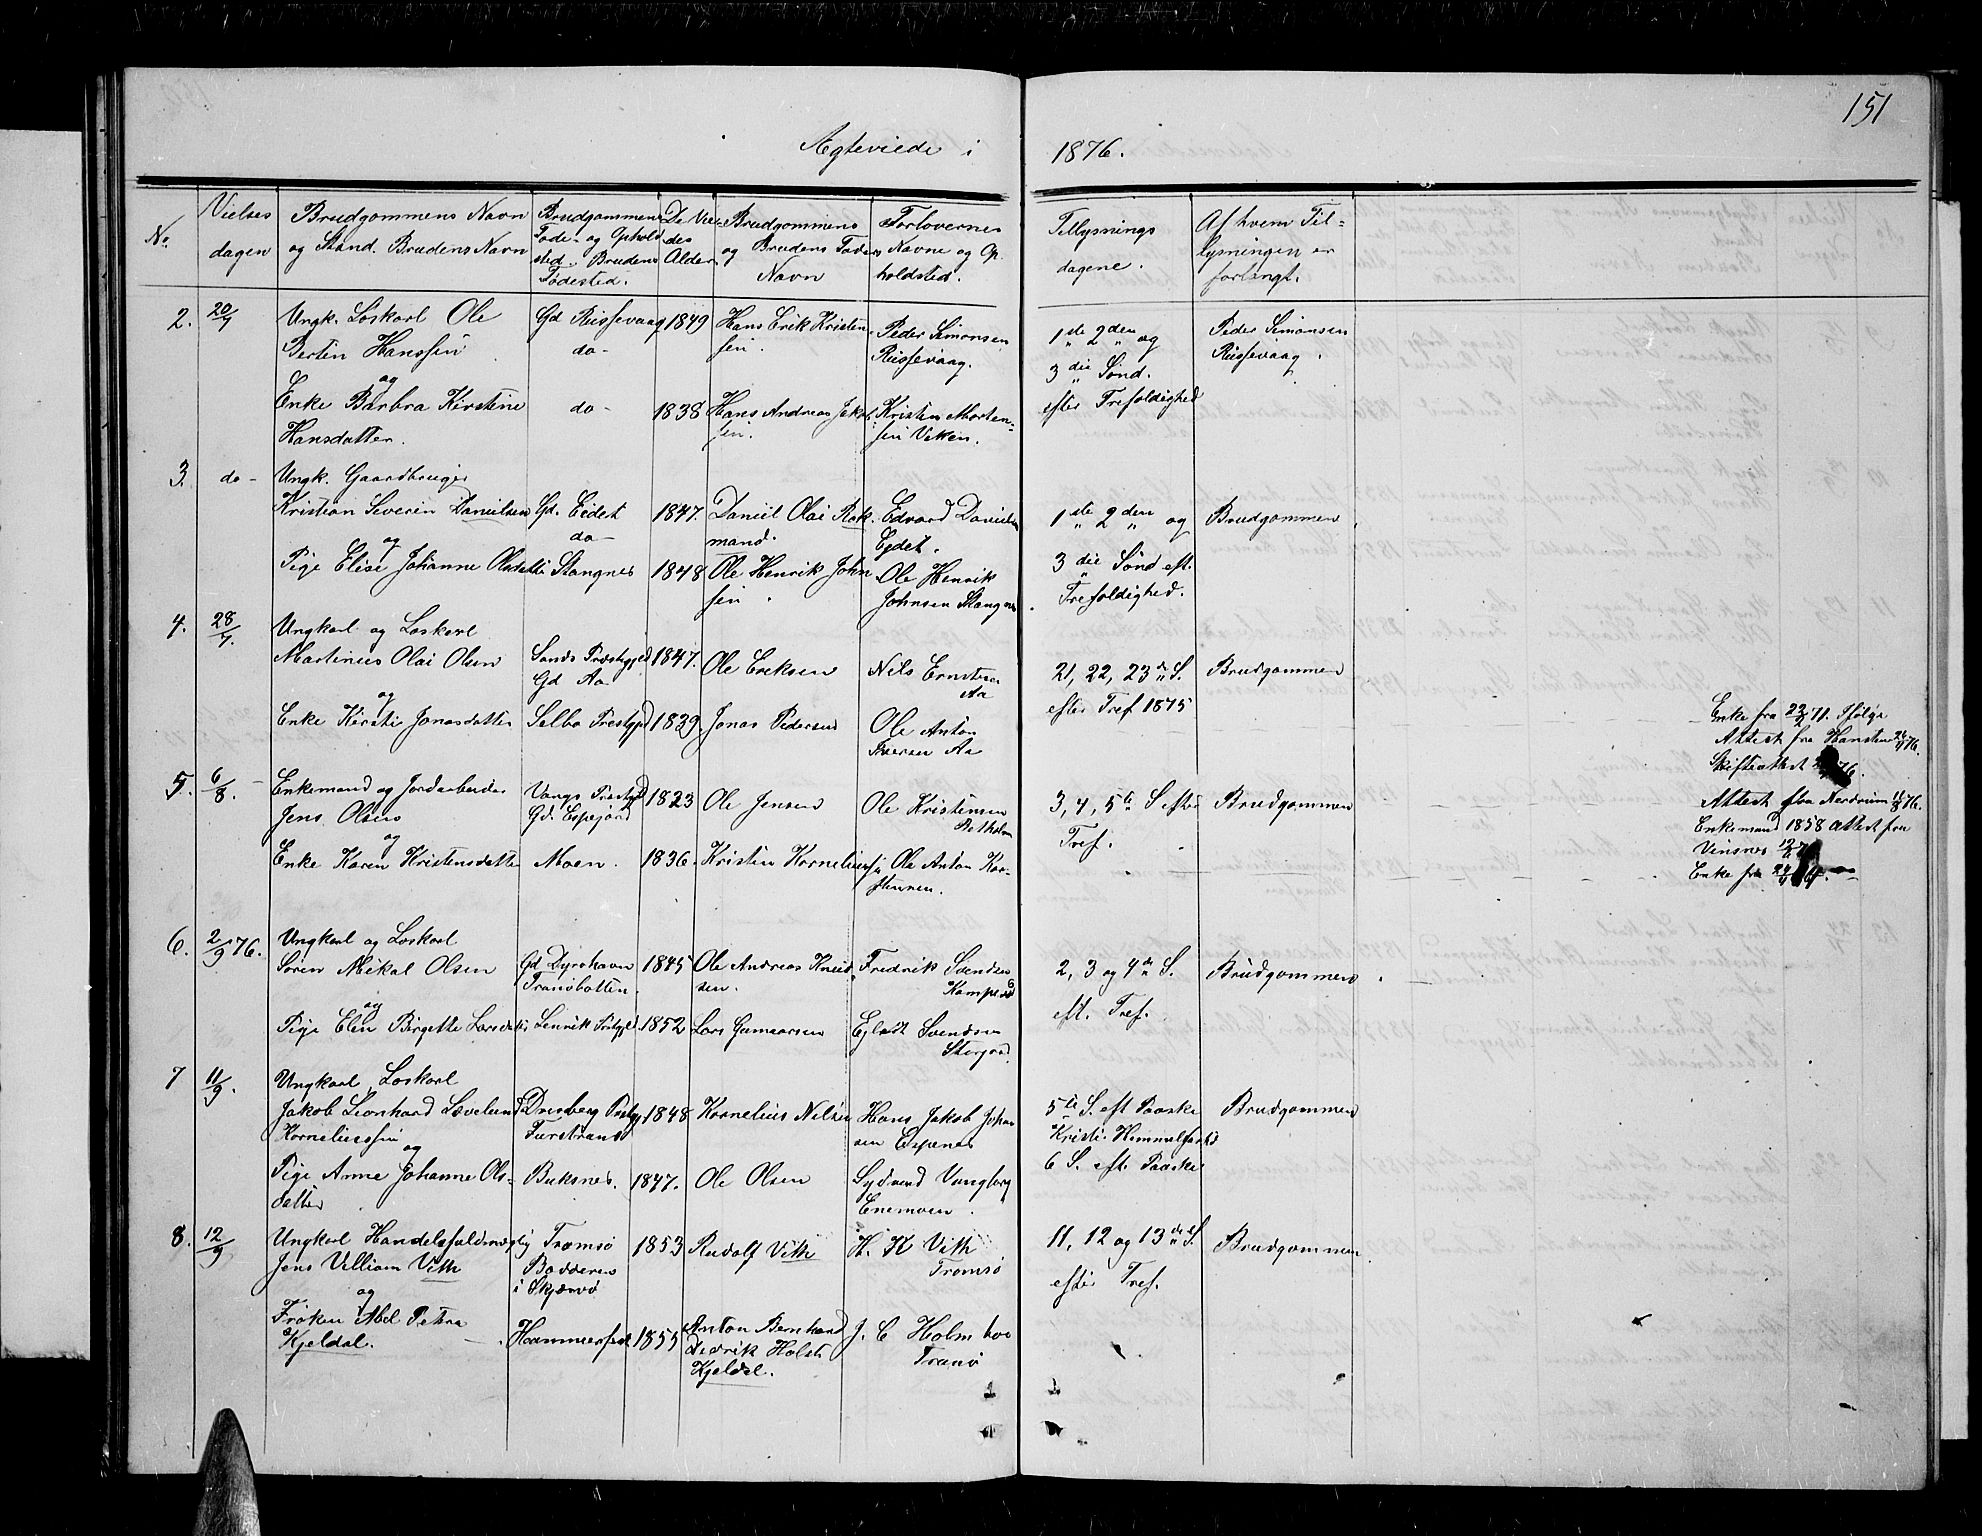 151
Ægteviede i 1876.
No.
Vielses
dagen
Brudgommens Navn
og Stand. Brudens Navn
Brudgommens
Føde- og Ophold
sted. Brudens
Fødested.
De Vie-
des
Alder
Brudgommens
og Brudens Faders
Navn
Forlovernes
Navne og Op
holdsted.
Tillysnings
dagene.
Af hvem Til-
lysningen er
forlangt.
2. 20/7 Ungk. Løskarl Ole
Bertin Hanssen
og
Enke Barbra Kirstine
Hansdatter.
Gd Russevaag
do-
do-
1849
1838
Hans Erik Kristen
sen.
Hans Andreas Jakob
sen.
Peder Simonsen
Russevaag.
Kristen Morten-
sen Viken.
1ste 2den og
3die Sønd.
efter Trefoldighed
Peder Simonsen
Russevaag.
3. do- Ungk. Gaardbruger
Kristian Severin Danielsen
og
Pige Elise Johanne Olsdatter
Gd. Eidet
do-
Stangnes
1847.
1848
Daniel Olai Rok
mand.
Ole Henrik John
sen.
Edvard Daniels
Eydet.
Ole Henrik
Johnsen Stangnes
1ste 2den og
3die Sønd eft.
Trefoldighed.
Brudgommen
4. 28/7. Ungkarl og Løskarl
Martinus Olai Olsen
og
Enke Kirsti Jonasdatter
Sands Præstegjeld
Gd Aa
Selbo Prestgjd
1847.
1839
Ole Eriksen
Jonas Pedersen
Nils Ernstsen
Aa
Ole Anton
Iversen Aa
21, 22, 23de S.
efter Tref 1875
Brudgommen
Enke fra 22/2 71. Ifølge
Attest fra Hansteen 26/4 76.
Skifteattest
5. 6/8. Enkemand og Jordarbeider
Jens Olsen
og
Enke Karen Kristensdatter
Vangs Prestgjd
Gd. Espejord
Moen.
1823
1836.
Ole Jensen
Kristen Korneliussen
Ole Kristensen
Ole Anton Kar-
stensen.
3, 4, 5te S efter
Tref.
Brudgommen
Attest fra Nerdrum 11/8 76.
Enkemand 1858 attest fra
Vinsnes
Enke fra
6. 2/9 76. Ungkarl og Løskarl
Søren Mikal Olsen
og
Pige Elen Birgitte Larsdatter
Gd Dyrshavn
Tranøbotten.
Lenvik Prstgjd.
1845
1852
Ole Andreas Knud
sen.
Lars Gunnarsen
Fredrik Svendsen
Kampevold
Eglodt Svendsen
Storjord.
2, 3 og 4de S.
eft. Tref.
Brudgommen
7 11/9. Ungkarl, Løskarl
Jakob Leonhard Løvelund
Korneliussen
og
Pige Anne Johanne Ols-
datter
Dverberg Prstgj
Turstrand
Buksnes.
1848
1847.
Kornelius Nilsen
Ole Olsen
Hans Jakob Johan
sen Espenes
Sydvend Vangberg
Enemoen.
5te S. eft Paaske
Kristi Himmelfarts
6 S. eft. Paaske
Brudgommen
8. 12/9 Ungkarl Handelsfuldmægtig
Jens Villiam Vith
og
Frøken Abel Petra
Kjeldal.
Tromsø
Bodderen
i Skjærvø
Hammerfest
1853
1855
Rudolf Vith
Anton Bernhard
Didrik Holst
Kjeldal.
H. K Vith
Tromsø
J. C Holmboe
Tranø
11, 12 og 13de S.
efter Tref.
Brudgommen